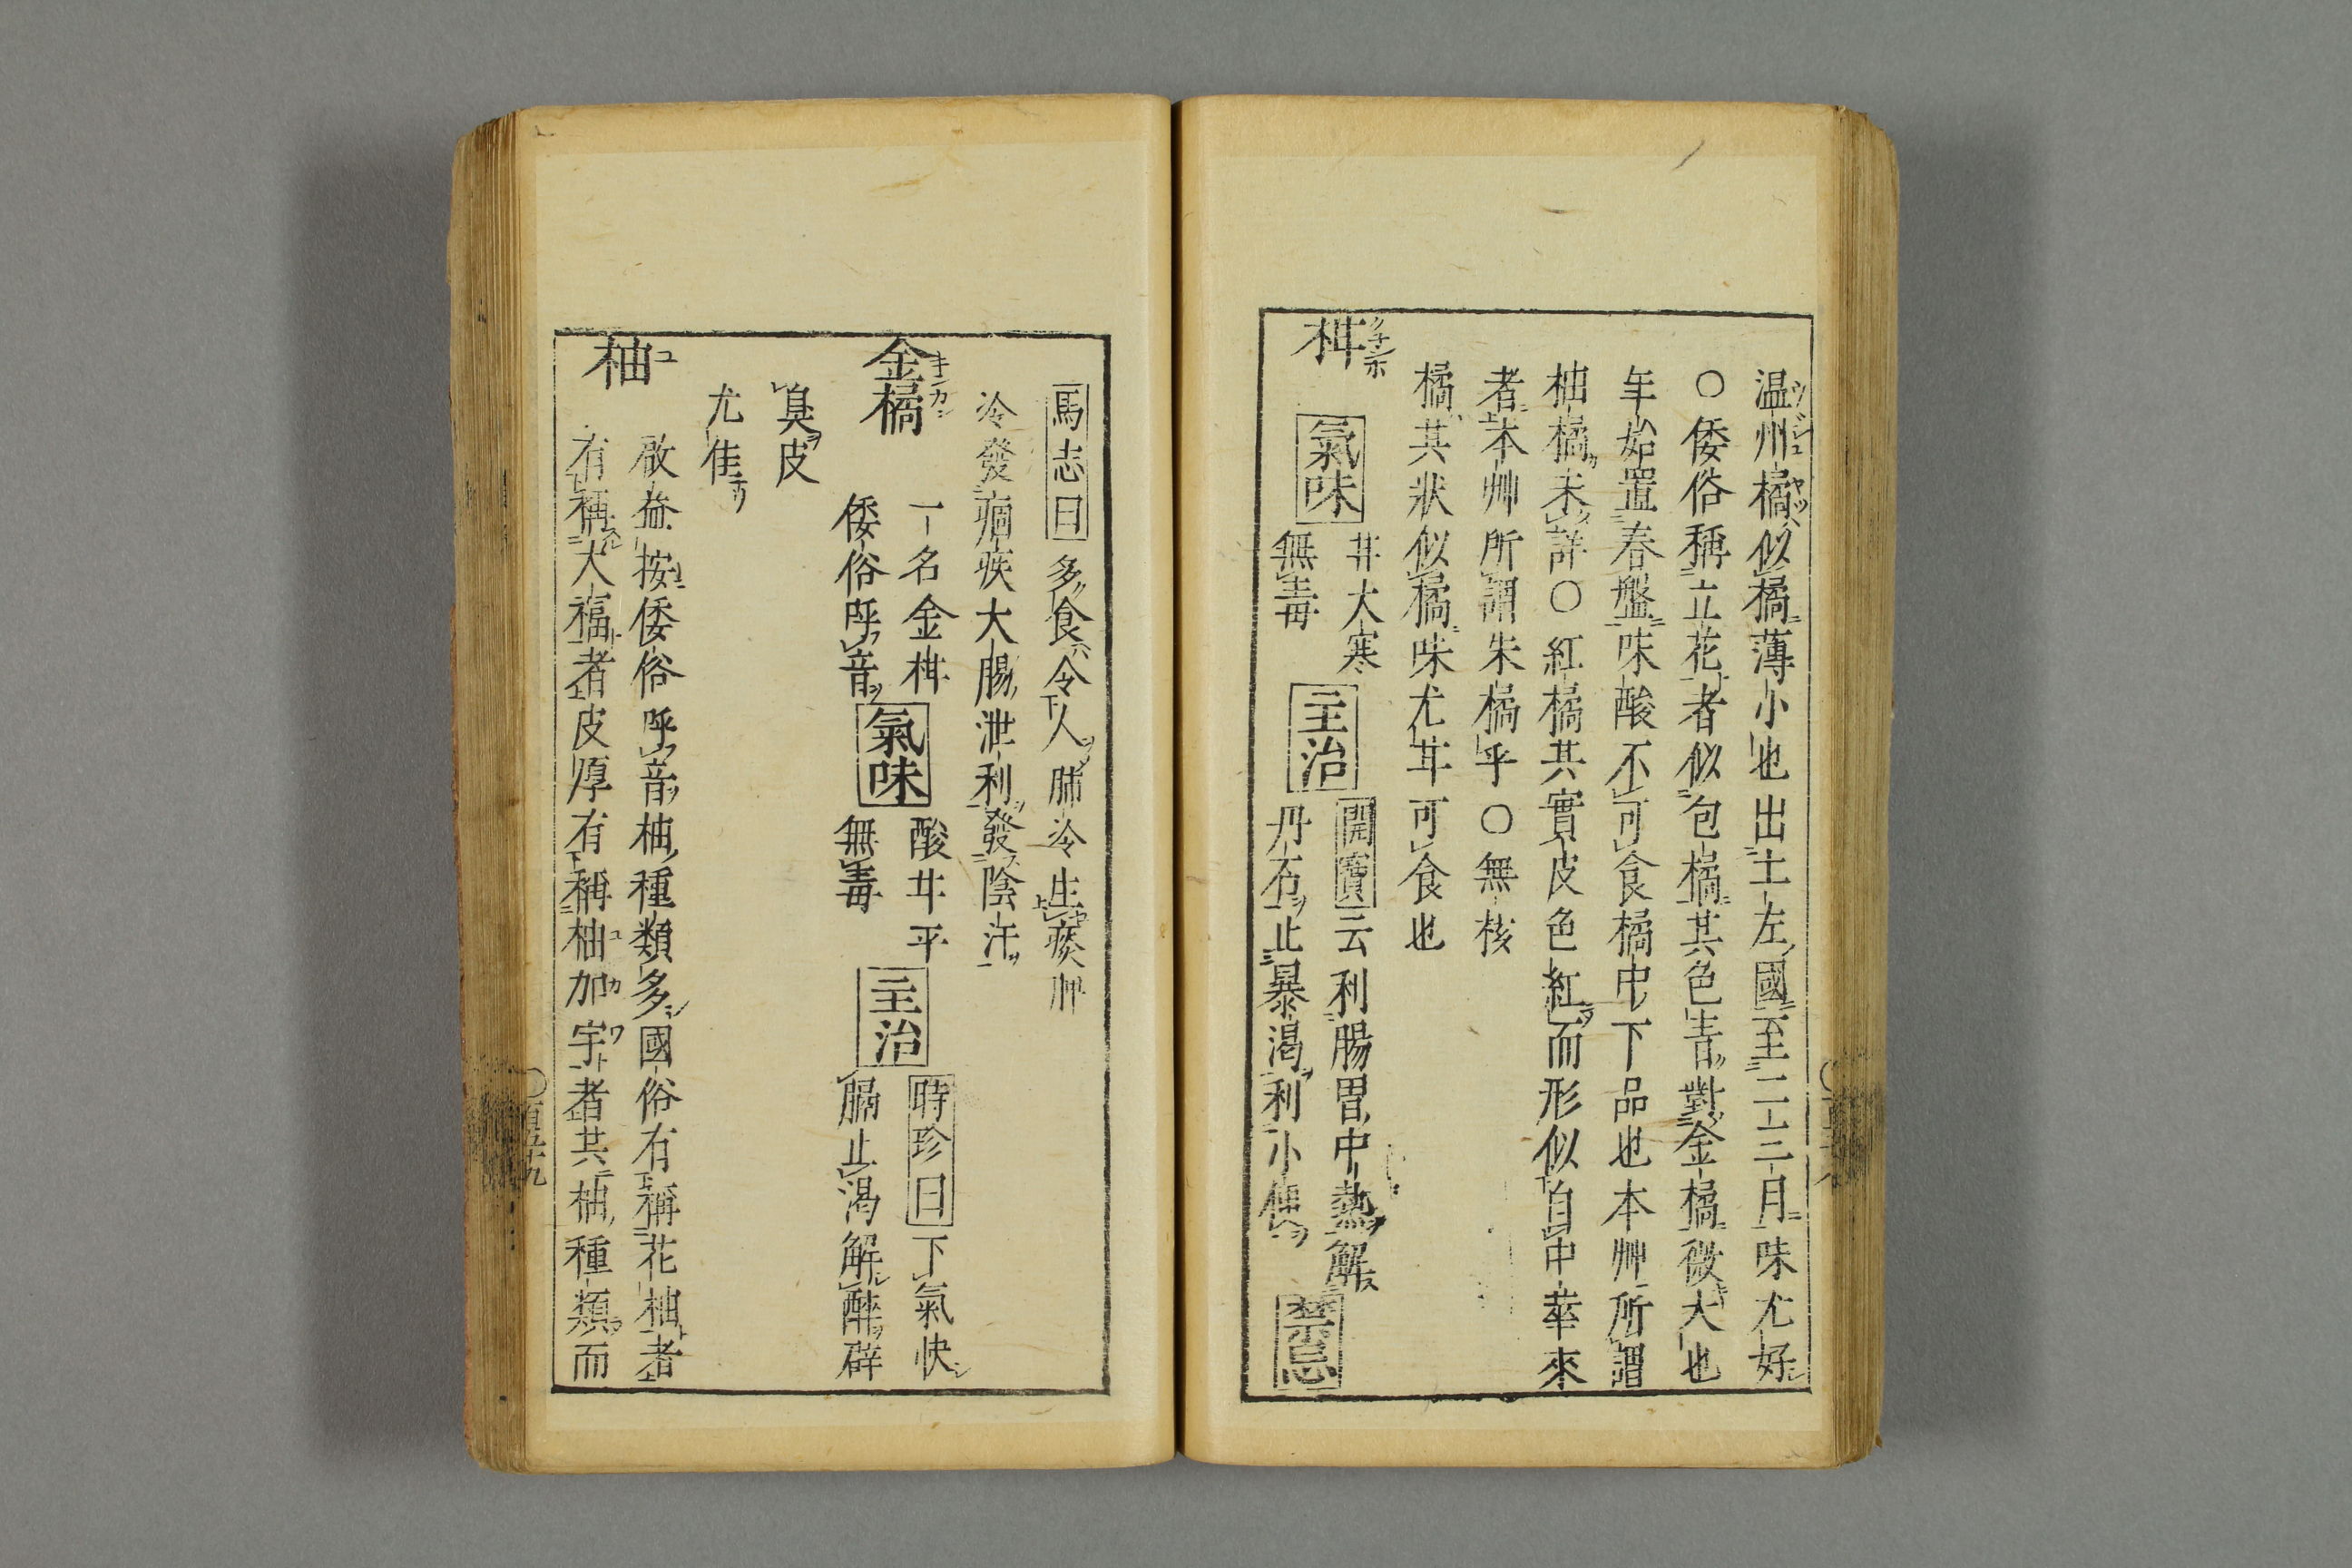 温州橘似橘薄小也出土左國至二三月味尤好
〇倭俗稱立花者似包橘其色青對金橘微大也
年始置春盤味酸不可食橘中下品也本艸所謂
柚橘未詳〇紅橘其實皮色紅而形似自中華來
者本艸所謂朱橘乎〇無核
橘其狀似橘味尤甘可食也
柑
氣味
甘大寒
無毒
主治
開寶云利腸胃中熱解
丹石止暴渴利小便
禁忌
馬志曰多食令人肺冷生痰脾
冷發痼疾大腸泄利發陰汗
金橘
キンカン
一名金柑
倭俗呼音
氣味
酸甘平
無毒
主治
時珍曰下氣快
膈止渴解酲辟
臭皮
尤佳
柚
ユ
啟益按倭俗呼音柚種類多國俗有稱花柚者
有稱大福者皮厚有稱柚加宇者共柚種類而
百五十九